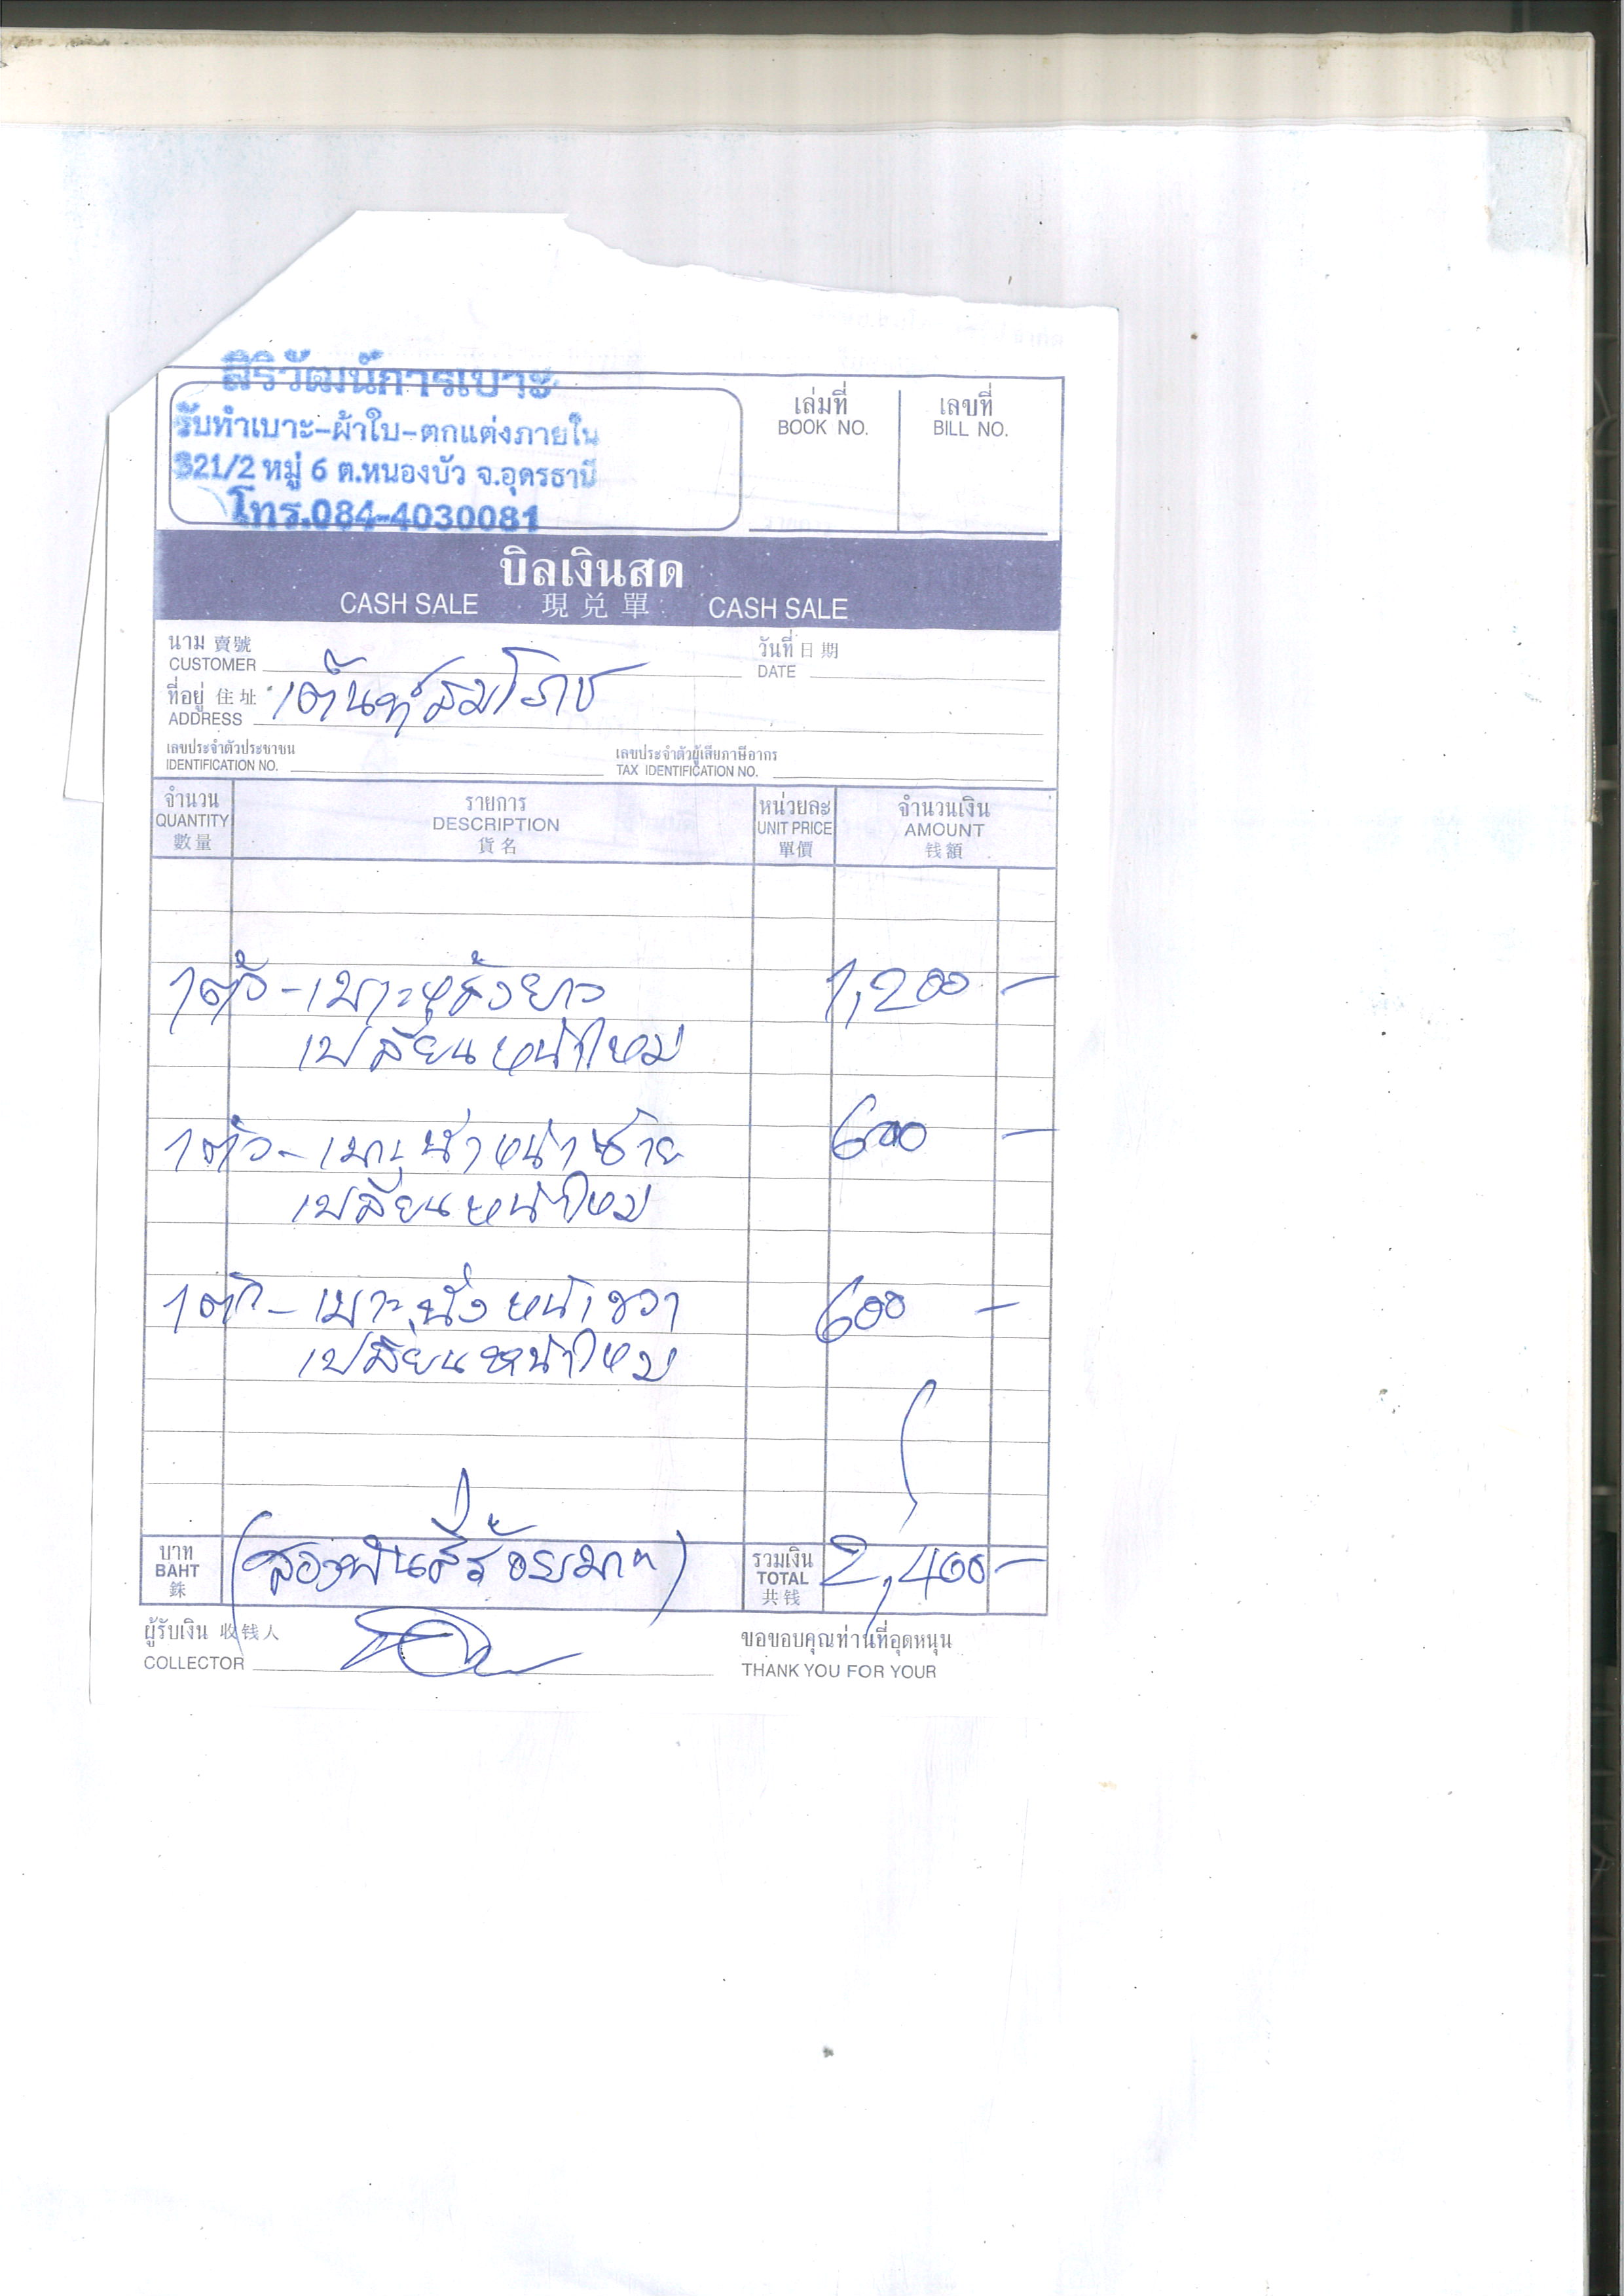 สิริวัฒน์การเบาะ
รับทำเบาะ-ผ้าใบ-ตกแต่งภายใน
321/2 หมู่ 6 ต.หนองบัว จ.อุดรธานี
โทร.084-4030081
เล่มที่
BOOK NO.
เลขที่
BILL NO.
บิลเงินสด
CASH SALE 現兑單 CASH SALE
นาม 賣號
CUSTOMER
วันที่ 日期
DATE
ที่อยู่ 住址
ADDRESS
เต็นท์สมโภช
เลขประจำตัวประชาชน
IDENTIFICATION NO.
เลขประจำตัวผู้เสียภาษีอากร
TAX IDENTIFICATION NO.
จำนวน
QUANTITY
數量
รายการ
DESCRIPTION
貨名
หน่วยละ
UNIT PRICE
單價
จำนวนเงิน
AMOUNT
钱額
1 ตัว - เบาะหลังยาว 1,200 -
เปลี่ยนหน้าใหม่
1 ตัว - เบาะหน้าซ้าย 600 -
เปลี่ยนหน้าใหม่
1 ตัว - เบาะนั่งหน้าขวา 600 -
เปลี่ยนหน้าใหม่
บาท
BAHT
銖
(สองพันสี่ร้อยบาท)
รวมเงิน
TOTAL
共钱
2,400 -
ผู้รับเงิน 收钱人
COLLECTOR
ขอขอบคุณท่านที่อุดหนุน
THANK YOU FOR YOUR